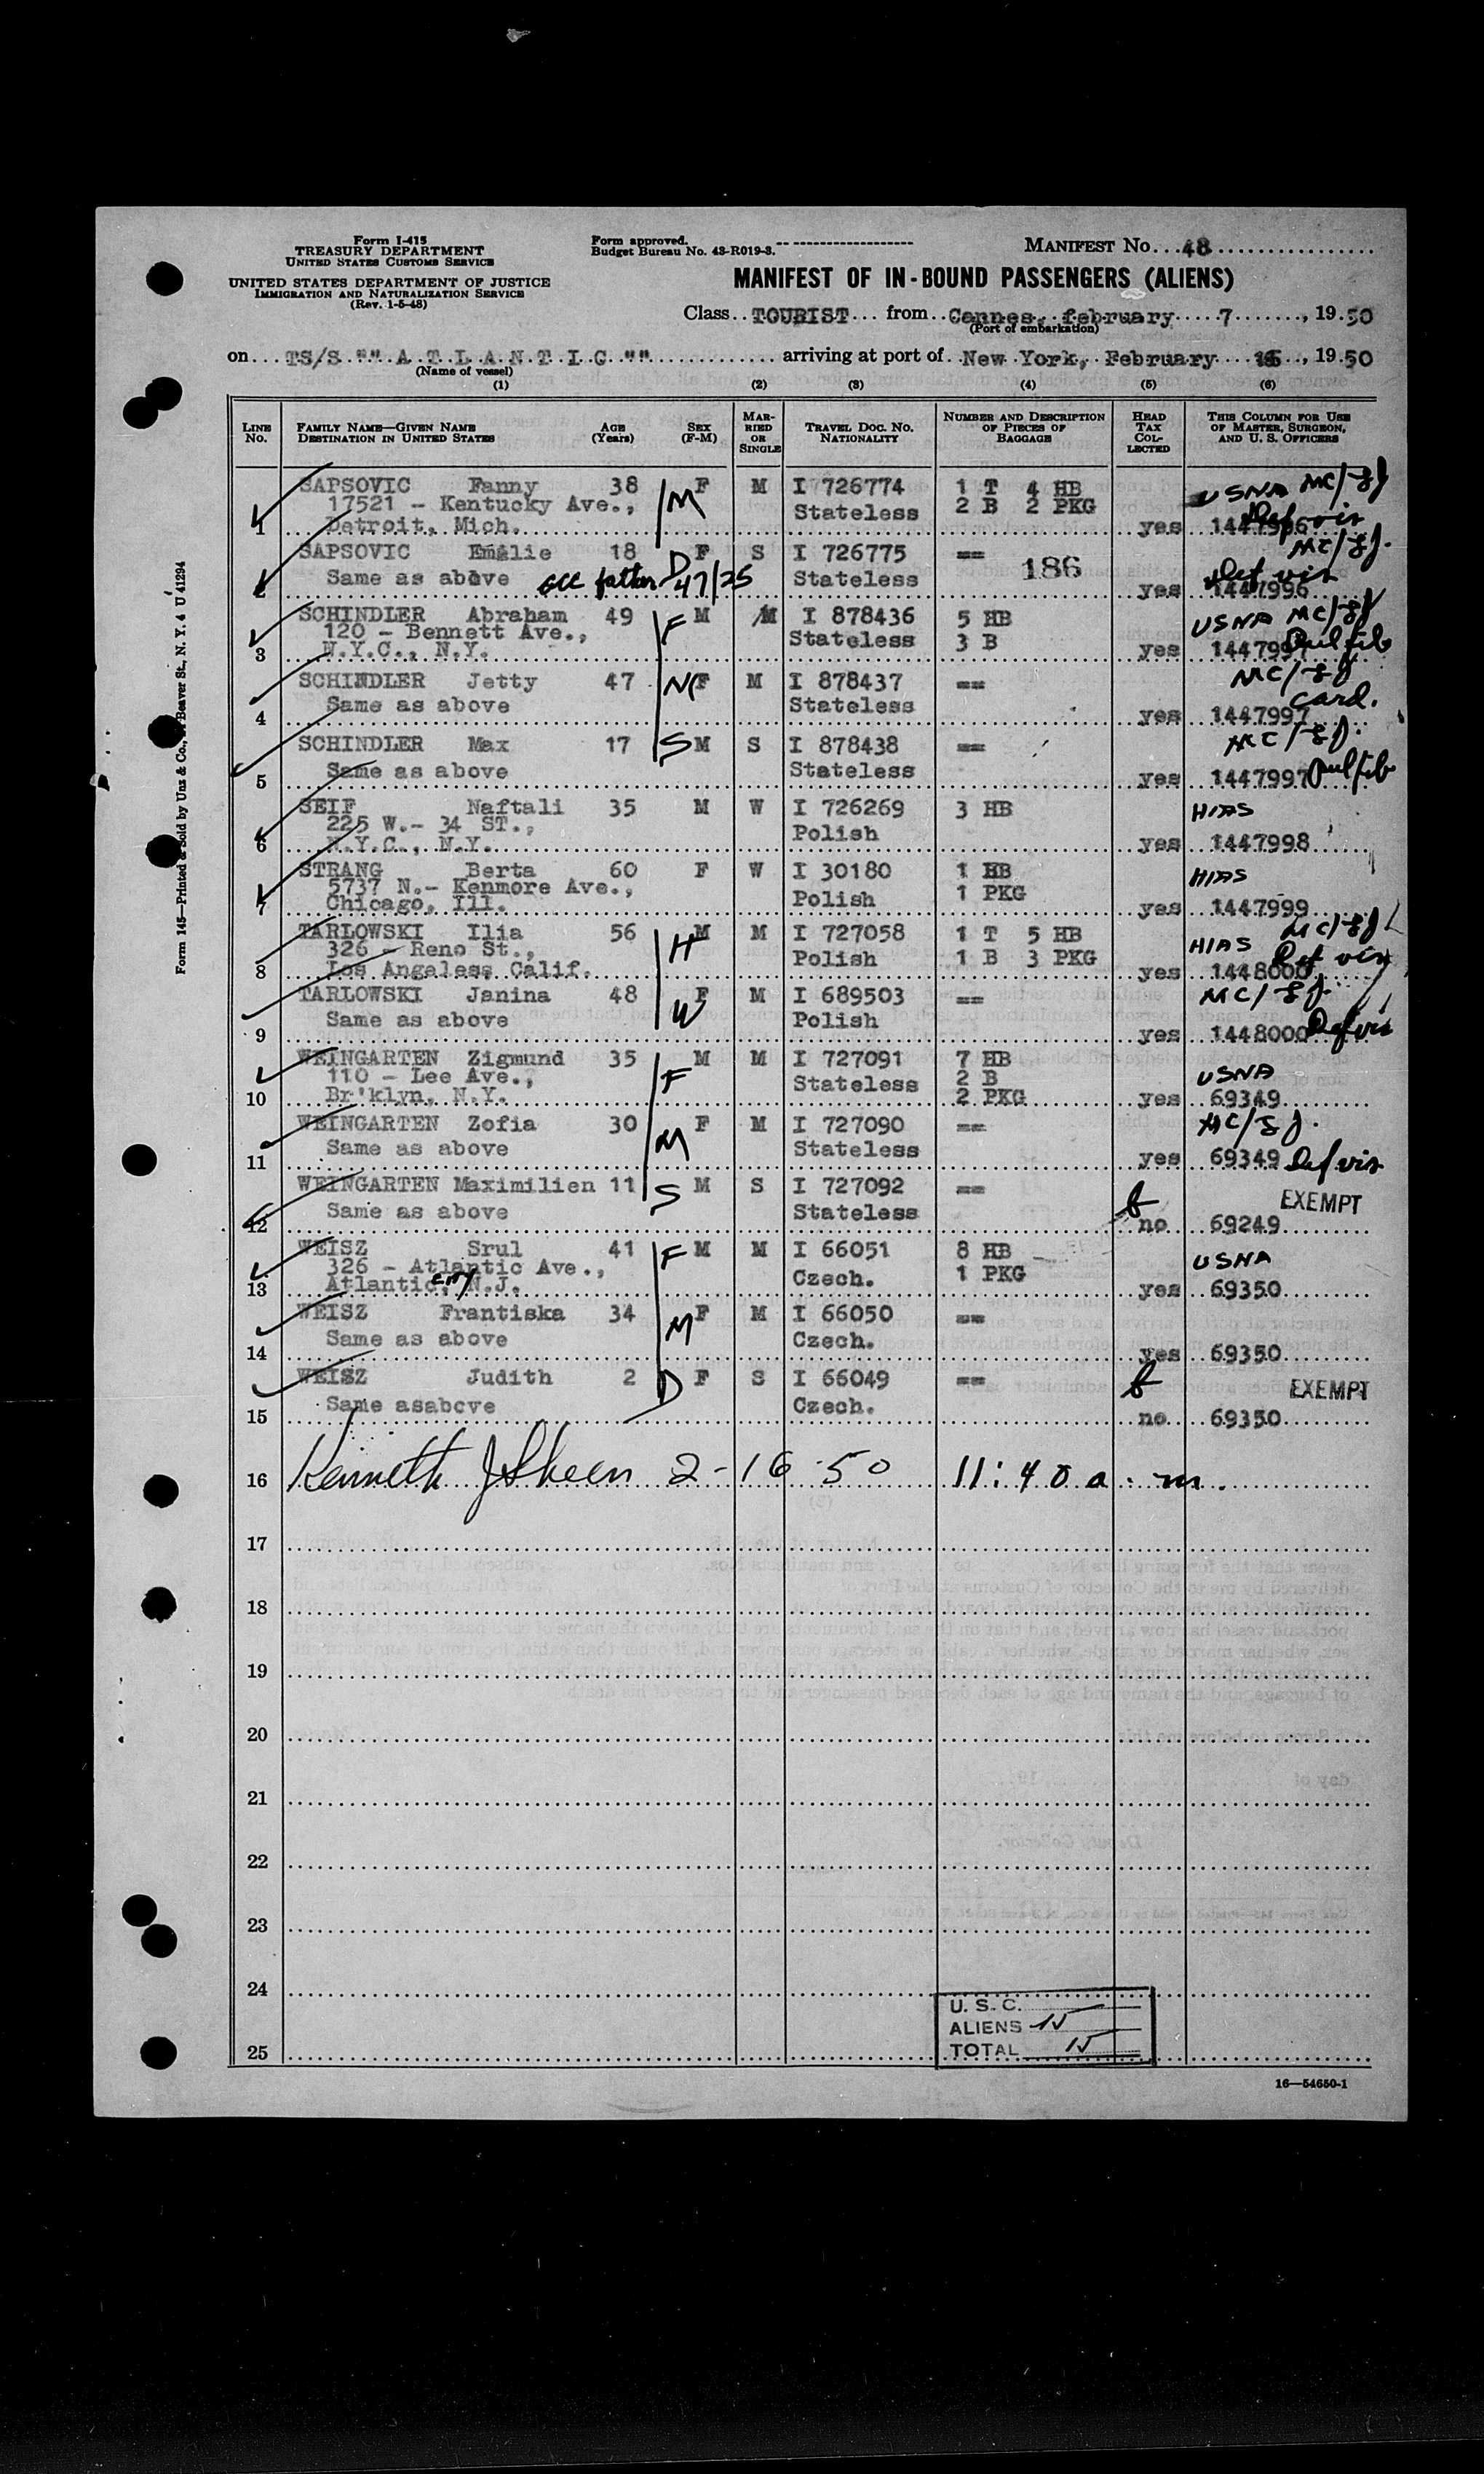 Form I-415
TREASURY DEPARTMENT
UNITED STATES CUSTOMS SERVICE
UNITED STATES DEPARTMENT OF JUSTICE
IMMIGRATION AND NATURALIZATION SERVICE
(Rev. 1-5-48)
Form approved.
Budget Bureau No. 43-R019-3.
MANIFEST NO. 48
MANIFEST OF IN-BOUND PASSENGERS (ALIENS)
Class TOURIST from Cannes, february 7, 1950
(Port of embarkation)
on TS/S "" A T L A N T I C "" arriving at port of New York, February 16, 1950
(Name of vessel)
(1) (2) (3) (4) (5) (6)
LINE NO. FAMILY NAME—GIVEN NAME DESTINATION IN UNITED STATES AGE (Years) SEX (F-M) MARRIED OR SINGLE TRAVEL DOC. NO. NATIONALITY NUMBER AND DESCRIPTION OF PIECES OF BAGGAGE HEAD TAX COLLECTED THIS COLUMN FOR USE OF MASTER, SURGEON, AND U. S. OFFICERS
SAPSOVIC Fanny 38 F M I 726774 1 T 4 HB USNA MC/
17521 - Kentucky Ave., M Stateless 2 B 2 PKG Def vis
1 Detroit, Mich. yes 1447996
SAPSOVIC Emilie 18 D F S I 726775 == 186 MC/
Same as above see father 47/25 Stateless Def vis
2 yes 1447996
SCHINDLER Abraham 49 F M M I 878436 5 HB USNA MC/
120 - Bennett Ave., Stateless 3 B
3 N.Y.C., N.Y. yes 1447997
SCHINDLER Jetty 47 F M I 878437 == MC/
Same as above Stateless card.
4 yes 1447997
SCHINDLER Max 17 S M S I 878438 == MC/
Same as above Stateless
5 yes 1447997
SEIF Naftali 35 M W I 726269 3 HB HIAS
225 W.- 34 ST., Polish
6 N.Y.C., N.Y. yes 1447998
STRANG Berta 60 F W I 30180 1 HB HIAS
5737 N.- Kenmore Ave., Polish 1 PKG
7 Chicago, Ill. yes 1447999
TARLOWSKI Ilia 56 H M M I 727058 1 T 5 HB MC/
326 - Reno St., Polish 1 B 3 PKG HIAS Def vis
8 Los Angaless Calif. yes 1448000
TARLOWSKI Janina 48 W F M I 689503 == MC/
Same as above Polish
9 yes 1448000 Def vis
WEINGARTEN Zigmund 35 F M M I 727091 7 HB
110 - Lee Ave., Stateless 2 B USNA
10 Br'klyn, N.Y. 2 PKG yes 69349
WEINGARTEN Zofia 30 M F M I 727090 == MC/
Same as above Stateless
11 yes 69349 Def vis
WEINGARTEN Maximilien 11 S M S I 727092 == EXEMPT
Same as above Stateless
12 no 69249
WEISZ Srul 41 F M M I 66051 8 HB USNA
326 - Atlantic Ave., Czech. 1 PKG
13 Atlantic, City N.J. yes 69350
WEISZ Frantiska 34 M F M I 66050 ==
Same as above Czech.
14 yes 69350
WEISZ Judith 2 D F S I 66049 == EXEMPT
Same asabove Czech.
15 no 69350
16 Kenneth J Skeen 2-16-50 11:40 a.m.
17
18
19
20
21
22
23
24
25
U. S. C.
ALIENS 15
TOTAL 15
16—54650-1
Form 145—Printed & Sold by Unz & Co., Beaver St., N. Y. 4 U 41294